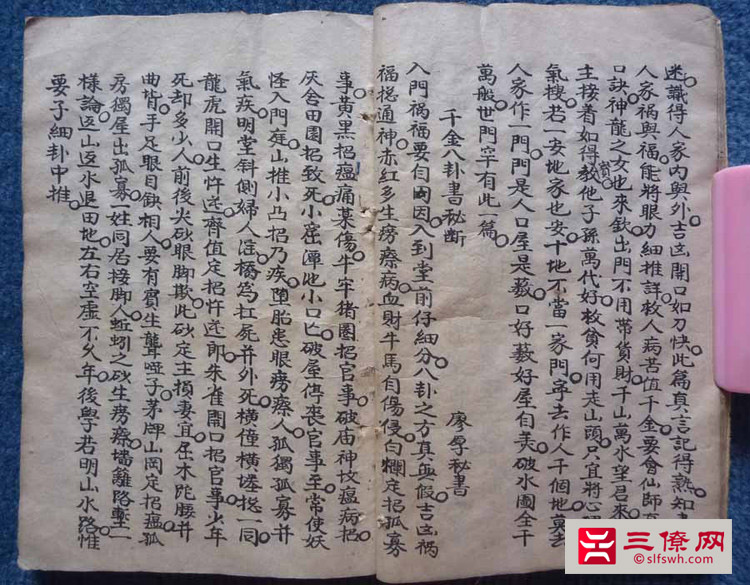 迷識得人家内與外吉凶開口如刀快此篇真言記得熟知
人家祸與福能將眼力細推詳救人病苦值千金要會仙師
口訣神龍之女也來欽出門不用带貨財千山萬水望君來
主接着如得教他子孫萬代好救貧何用走山頭只宜將心
氣搜君一安地家也安十地不當一家門寧去作人千個地莫去
人家作一門門是人口屋是薮口好薮好屋自美破水圖全千
萬般世門罕有此一篇
千金八卦書秘断
廖厚秘書
入門祸福要自國因入到堂前仔細分八卦之方真與假吉凶祸
福捴通神赤红多生痨瘵病血財牛馬自傷侵白爛定招孤寡
事黄黑招瘟痛菓傷牛牢猪圈招官事破庙神坟瘟病招
灰舍田園招致死小窑潭池小口亡破屋停丧官事至常使妖
怪入門庭山推小凸招乃疾墮胎患眼痨瘵人孤獨孤寡并
氣疾明堂斜側婦人淫橋為扛屍并外死横撞横塟捴一同
龍虎開口生忤逆齊值定招忤逆郎朱雀開口招官事少年
死却多少人前後尖砂眼脚欺此砂定主損妻宜屈木跎腰并
曲皆手足眼目鈌相人要有賓生聾啞子茅牌山岡定招瘟孤
房獨屋出孤寡一姓同居接脚人蚯蚓之砂生痨瘵墙籬路塹一
樣論返山返水退田地左右空虚不久年後學若明山水路惟
要子細卦中推
三僚网
slfswh.com